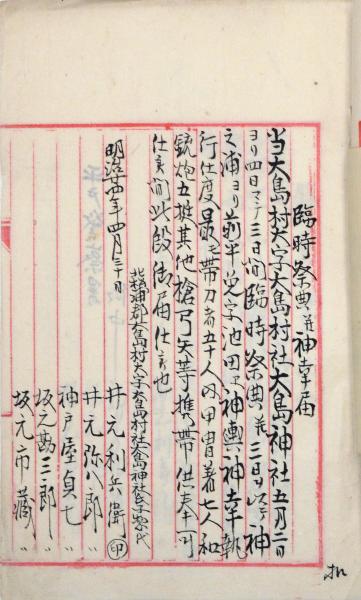 臨時祭典並神幸届
当大島村大字大島村社大島神社五月二日
ヨリ四日マデ三日間臨時祭典並三日ヲ以テ神
之浦ヨリ前半 字池田ヱ神輿神幸執
行仕度最モ帯刀者五十人内甲冑着七人和
銃炮五挺其他槍弓矢等携帯供奉可
仕候間此段御届仕候也
明治廿四年四月三十日
北松浦郡大島村大字大島村社大島神社氏子惣代
井元利兵衛 印
井元弥八郎 〃
神戸屋貞七 〃
坂元勘三郎 〃
坂元市藏 〃